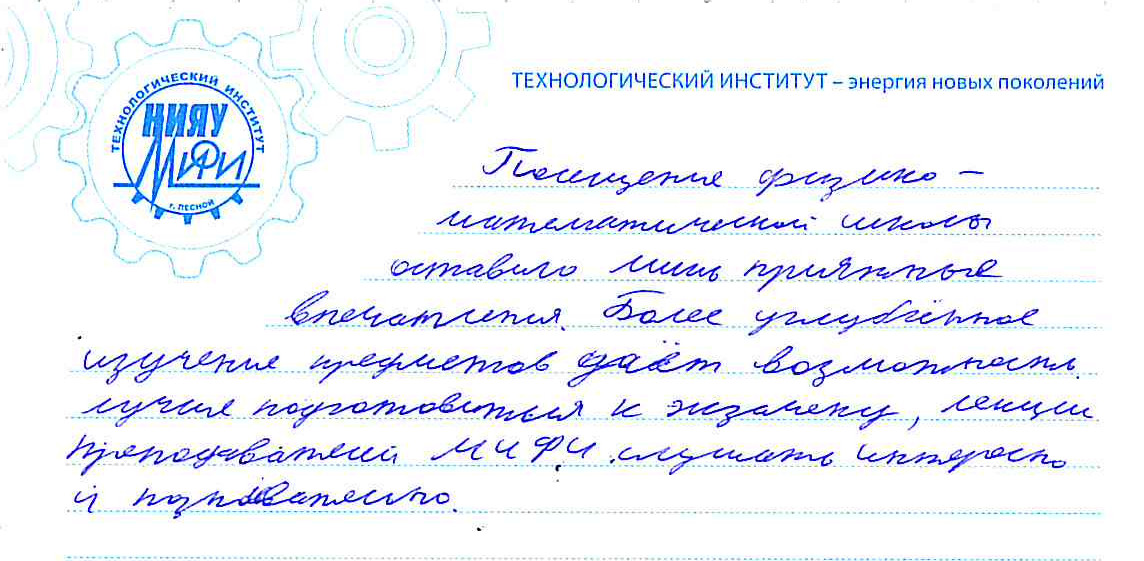 ТЕХНОЛОГИЧЕСКИЙ ИНСТИТУТ
НИЯУ
МИФИ
г. ЛЕСНОЙ
ТЕХНОЛОГИЧЕСКИЙ ИНСТИТУТ – энергия новых поколений
Посещение физико –
математической школы
оставило лишь приятные
впечатления. Более углублённое
изучение предметов даёт возможность
лучше подготовиться к экзамену, лекции
преподавателей МИФИ слушать интересно
и познавательно.